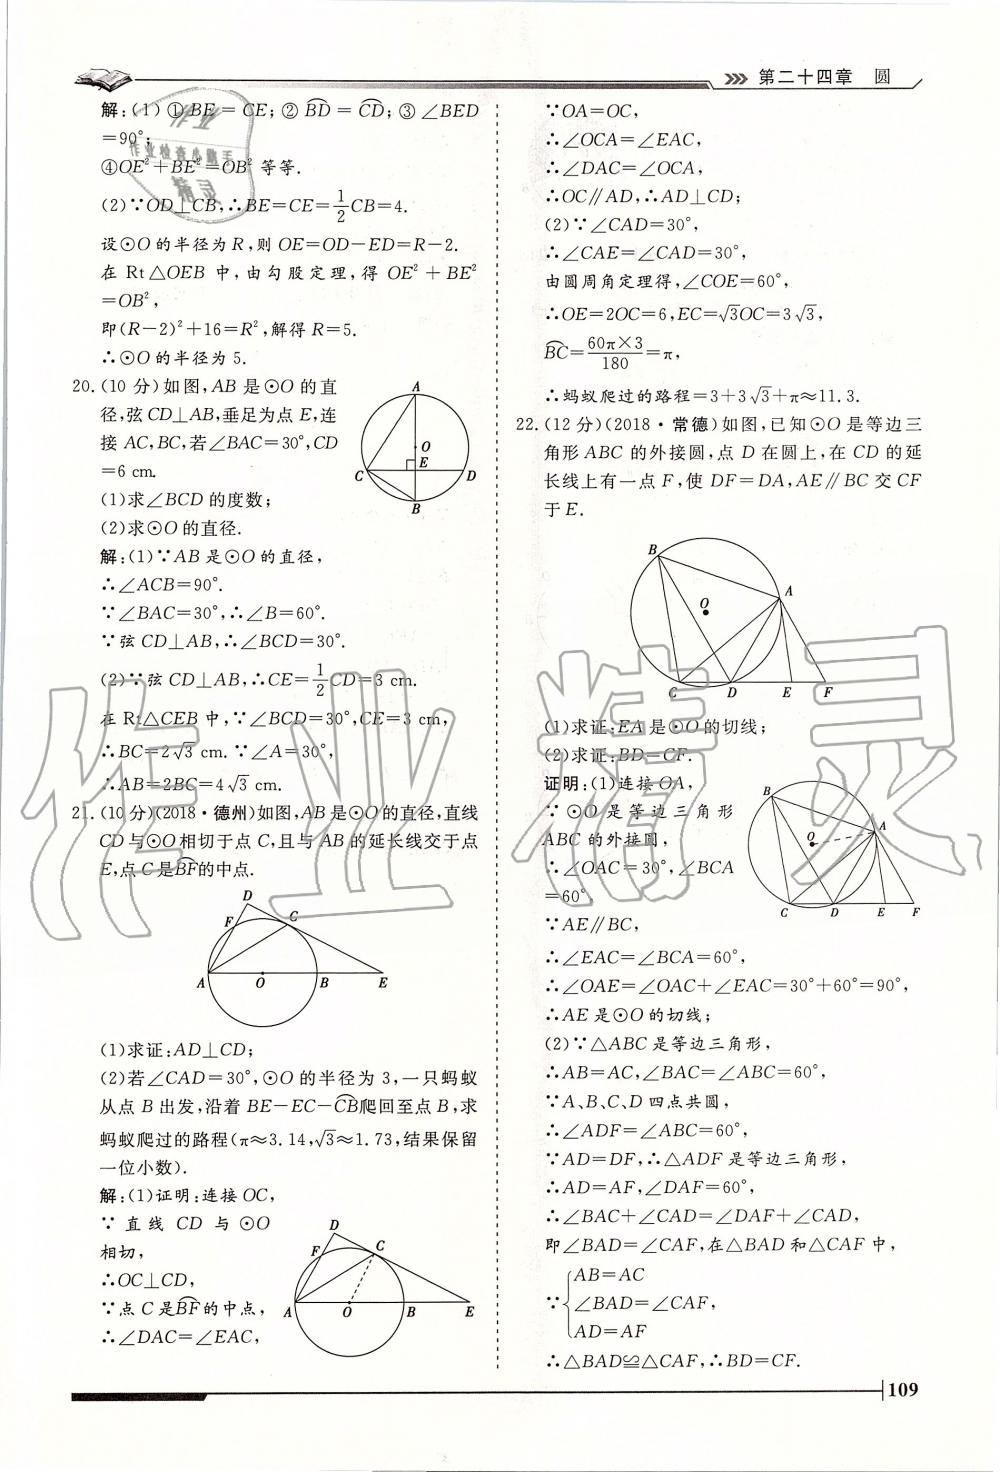 第二十四章　圆
解:(1)①BE=CE;②BD=CD;③∠BED
=90°;
④OE²+BE²=OB²等等.
(2)∵OD⊥CB,∴BE=CE=1/2CB=4.
设⊙O的半径为R,则OE=OD-ED=R-2.
在Rt△OEB中,由勾股定理,得OE²+BE²
=OB²,
即(R-2)²+16=R²,解得R=5.
∴⊙O的半径为5.
20.(10分)如图,AB是⊙O的直
径,弦CD⊥AB,垂足为点E,连
接AC,BC,若∠BAC=30°,CD
=6 cm.
(1)求∠BCD的度数;
(2)求⊙O的直径.
A
O
E
C
D
B
解:(1)∵AB是⊙O的直径,
∴∠ACB=90°.
∵∠BAC=30°,∴∠B=60°.
∵弦CD⊥AB,∴∠BCD=30°.
(2)∵弦CD⊥AB,∴CE=1/2CD=3 cm.
在Rt△CEB中,∵∠BCD=30°,CE=3 cm,
∴BC=2√3 cm.∵∠A=30°,
∴AB=2BC=4√3 cm.
21.(10分)(2018·德州)如图,AB是⊙O的直径,直线
CD与⊙O相切于点C,且与AB的延长线交于点
E,点C是BF的中点.
D
F
C
A
O
B
E
(1)求证:AD⊥CD;
(2)若∠CAD=30°,⊙O的半径为3,一只蚂蚁
从点B出发,沿着BE-EC-CB爬回至点B,求
蚂蚁爬过的路程(π≈3.14,√3≈1.73,结果保留
一位小数).
解:(1)证明:连接OC,
∵直线CD与⊙O
相切,
∴OC⊥CD,
∵点C是BF的中点,
∴∠DAC=∠EAC,
D
F
C
A
O
B
E
∵OA=OC,
∴∠OCA=∠EAC,
∴∠DAC=∠OCA,
∴OC∥AD,∴AD⊥CD;
(2)∵∠CAD=30°,
∴∠CAE=∠CAD=30°,
由圆周角定理得,∠COE=60°,
∴OE=2OC=6,EC=√3OC=3√3,
BC=60π×3/180=π,
∴蚂蚁爬过的路程=3+3√3+π≈11.3.
22.(12分)(2018·常德)如图,已知⊙O是等边三
角形ABC的外接圆,点D在圆上,在CD的延
长线上有一点F,使DF=DA,AE∥BC交CF
于E.
B
A
O
C
D
E
F
(1)求证:EA是⊙O的切线;
(2)求证:BD=CF.
证明:(1)连接OA,
∵⊙O是等边三角形
ABC的外接圆,
∴∠OAC=30°,∠BCA
=60°
∵AE∥BC,
B
A
O
C
D
E
F
∴∠EAC=∠BCA=60°,
∴∠OAE=∠OAC+∠EAC=30°+60°=90°,
∴AE是⊙O的切线;
(2)∵△ABC是等边三角形,
∴AB=AC,∠BAC=∠ABC=60°,
∵A、B、C、D四点共圆,
∴∠ADF=∠ABC=60°,
∵AD=DF,∴△ADF是等边三角形,
∴AD=AF,∠DAF=60°,
∴∠BAC+∠CAD=∠DAF+∠CAD,
即∠BAD=∠CAF,在△BAD和△CAF中,
AB=AC
∵{∠BAD=∠CAF,
AD=AF
∴△BAD≌△CAF,∴BD=CF.
109
作业
作业检查小助手
精灵
作业精灵